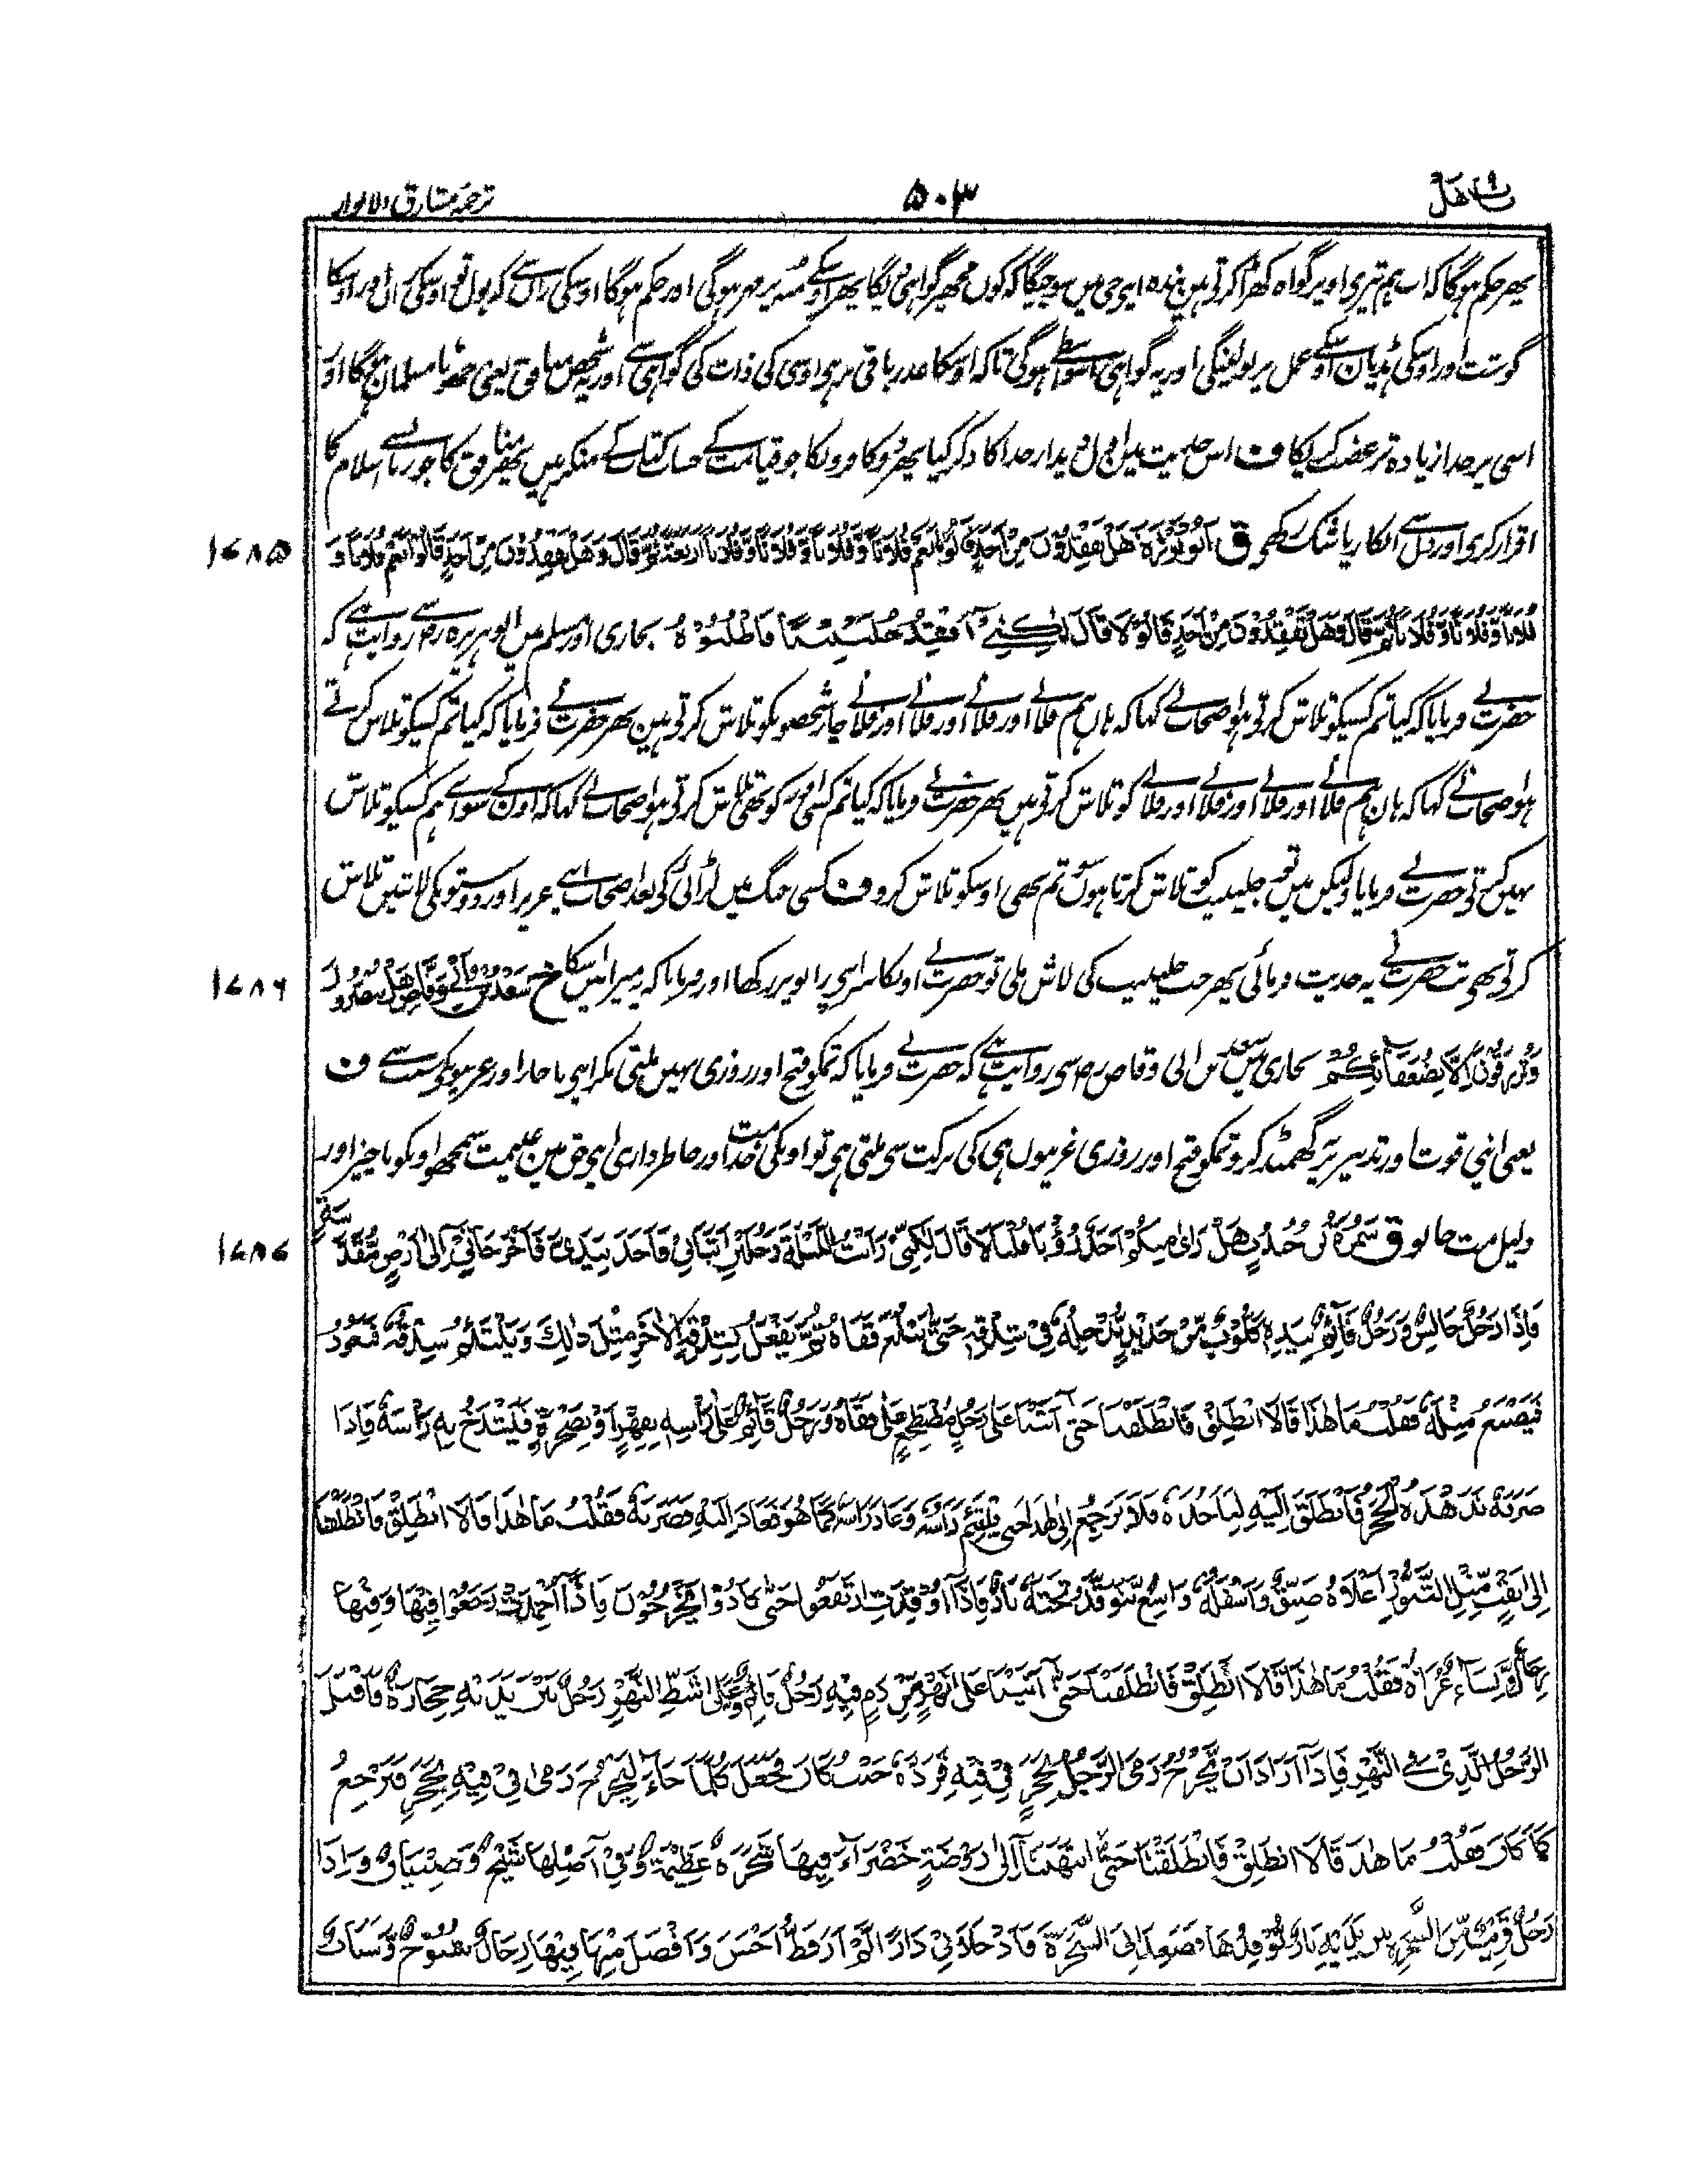 باب هل
۵۰۳
ترجمۂ مشارق الانوار
پھر حکم ہوگا کہ اب ہم تیری اوپر گواہ کھڑا کرتی ہین بندہ اپنی جی مین سوچیگا کہ کون مجھپر گواہی دیگا پھر اوسکے مُنہ پر مہر ہوگی اور حکم ہوگا اوسکی ران سے کہ بول تو اوسکی ران اور اوسکا
گوشت اور اوسکی ہڈیان اوسکے عمل پر بولینگی اور یہ گواہی اسواسطے ہوگی تاکہ اوسکا عذر باقی نرہی اوسی کی ذات کی گواہی سے اور یہ شخص منافق یعنی جھوٹا مسلمان ہوگا اور
اسی پر خدا زیادہ تر غضب کریگا ف اس حدیث مین اول دیدار خدا کا ذکر کیا پھر کافرونکا جو قیامت کے حساب کتاب کے منکر ہین پھر منافق کا جو زبان سے اسلام کا
اقرار کری اور دل سے انکار یا شک رکھی ق اَبُو بَرْزَةَ هَلْ تَفْقِدُوْنَ مِنْ اَحَدٍ قَالُوْا نَعَمْ فُلَانًا وَّفُلَانًا وَّفُلَانًا وَّفُلَانًا اَرْبَعَةً ثُمَّ قَالَ وَهَلْ تَفْقِدُوْنَ مِنْ اَحَدٍ قَالُوْا نَعَمْ فُلَانًا وَّ
۱۷۸۵
فُلَانًا وَّفُلَانًا وَّفُلَانًا ثُمَّ قَالَ وَهَلْ تَفْقِدُوْنَ مِنْ اَحَدٍ قَالُوْا لَا قَالَ لٰكِنِّيْ اَفْقِدُ جُلَيْبِيْبًا فَاطْلُبُوْهُ بخاری اور مسلم مین ابو ہریرہ رض سے روایت ہے کہ
حضرت نے فرمایا کہ کیا تم کسیکو تلاش کرتی ہو اصحاب نے کہا کہ ہاں ہم فلانے اور فلانے اور فلانے اور فلانے چار شخصونکو تلاش کرتی ہین پھر حضرت نے فرمایا کہ کیا تم کسیکو تلاش کرتے
ہو اصحاب نے کہا کہ ہان ہم فلانے اور فلانے اور فلانے اور فلانے کو تلاش کرتی ہین پھر حضرت نے فرمایا کہ کیا تم کسی اور کو بھی تلاش کرتی ہو اصحاب نے کہا کہ اون کے سوا ہم کسیکو تلاش
نہین کرتی حضرت نے فرمایا ولیکن مین تو جلیبیب کو تلاش کرتا ہون تم بھی اوسکو تلاش کرو ف کسی جنگ مین لڑائی کی بعد اصحاب اپنے عزیز اور دوستونکی لاشین تلاش
کرتی تھی تب حضرت نے یہ حدیث فرمائی پھر جب جلیبیب کی لاش ملی تو حضرت نے اوسکا سر اپنی زانو پر رکھا اور فرمایا کہ یہ میرا مین اسکا خ سَعْدُ بْنُ اَبِيْ وَقَّاصٍ هَلْ تُنْصَرُوْنَ
۱۷۸۶
وَتُرْزَقُوْنَ اِلَّا بِضُعَفَائِكُمْ بخاری مین سعد بن ابی وقاص رض سی روایت ہے کہ حضرت نے فرمایا کہ تمکو فتح اور روزی نہین ملتی مگر اپنی ناچار اور غریبونکی سبب سے ف
یعنی اپنی قوت اور تدبیر پر گھمنڈ نکرو تمکو فتح اور روزی غریبون ہی کی برکت سی ملتی ہی تو اونکی خدمت اور خاطرداری اپنی حق مین غنیمت سمجھو اونکو ناچیز اور
ذلیل مت جانو ق سَمُرَةُ بْنُ جُنْدُبٍ هَلْ رَاٰى مِنْكُمْ اَحَدٌ رُؤْيَا قُلْنَا لَا قَالَ لٰكِنِّيْ رَاَيْتُ اللَّيْلَةَ رَجُلَيْنِ اَتَيَانِيْ فَاَخَذَا بِيَدَيَّ فَاَخْرَجَانِيْ اِلٰى اَرْضٍ مُّقَدَّسَةٍ
۱۷۸۷
فَاِذَا رَجُلٌ جَالِسٌ وَّرَجُلٌ قَائِمٌ بِيَدِهٖ كَلُّوْبٌ مِّنْ حَدِيْدٍ يُّدْخِلُهٗ فِيْ شِدْقِهٖ حَتّٰى يَبْلُغَ قَفَاهُ ثُمَّ يَفْعَلُ بِشِدْقِهِ الْاٰخَرِ مِثْلَ ذٰلِكَ وَيَلْتَئِمُ شِدْقُهٗ فَيَعُوْدُ
فَيَصْنَعُ مِثْلَهٗ فَقُلْتُ مَا هٰذَا قَالَا انْطَلِقْ فَانْطَلَقْنَا حَتّٰى اَتَيْنَا عَلٰى رَجُلٍ مُضْطَجِعٍ عَلٰى قَفَاهُ وَرَجُلٌ قَائِمٌ عَلٰى رَاْسِهٖ بِفِهْرٍ اَوْ بِصَخْرَةٍ فَيَشْدَخُ بِهٖ رَاْسَهٗ فَاِذَا
ضَرَبَهٗ تَدَهْدَهَ الْحَجَرُ فَانْطَلَقَ اِلَيْهِ لِيَاْخُذَهٗ فَلَا يَرْجِعُ اِلٰى هٰذَا حَتّٰى يَلْتَئِمَ رَاْسُهٗ وَعَادَ رَاْسُهٗ كَمَا هُوَ فَعَادَ اِلَيْهِ فَضَرَبَهٗ فَقُلْتُ مَا هٰذَا قَالَا انْطَلِقْ فَانْطَلَقْنَا
اِلٰى نَقْبٍ مِّثْلِ التَّنُّوْرِ اَعْلَاهُ ضَيِّقٌ وَاَسْفَلُهٗ وَاسِعٌ تَتَوَقَّدُ تَحْتَهٗ نَارٌ فَاِذَا اُوْقِدَتِ ارْتَفَعُوْا حَتّٰى كَادُوْا يَخْرُجُوْنَ فَاِذَا اُخْمِدَتْ رَجَعُوْا فِيْهَا وَفِيْهَا
رِجَالٌ وَّنِسَاءٌ عُرَاةٌ فَقُلْتُ مَا هٰذَا قَالَا انْطَلِقْ فَانْطَلَقْنَا حَتّٰى اَتَيْنَا عَلٰى نَهْرٍ مِّنْ دَمٍ فِيْهِ رَجُلٌ قَائِمٌ وَّعَلٰى شَطِّ النَّهْرِ رَجُلٌ بَيْنَ يَدَيْهِ حِجَارَةٌ فَاَقْبَلَ
الرَّجُلُ الَّذِيْ فِي النَّهْرِ فَاِذَا اَرَادَ اَنْ يَّخْرُجَ رَمَى الرَّجُلُ بِحَجَرٍ فِيْ فِيْهِ فَرَدَّهٗ حَيْثُ كَانَ فَجَعَلَ كُلَّمَا جَاءَ لِيَخْرُجَ رَمٰى فِيْ فِيْهِ بِحَجَرٍ فَيَرْجِعُ
كَمَا كَانَ فَقُلْتُ مَا هٰذَا قَالَا انْطَلِقْ فَانْطَلَقْنَا حَتّٰى انْتَهَيْنَا اِلٰى رَوْضَةٍ خَضْرَاءَ فِيْهَا شَجَرَةٌ عَظِيْمَةٌ وَّفِيْ اَصْلِهَا شَيْخٌ وَّصِبْيَانٌ وَّاِذَا
رَجُلٌ قَرِيْبٌ مِّنَ الشَّجَرَةِ بَيْنَ يَدَيْهِ نَارٌ يُّوْقِدُهَا فَصَعِدَا بِيَ الشَّجَرَةَ فَاَدْخَلَانِيْ دَارًا لَّمْ اَرَ قَطُّ اَحْسَنَ وَاَفْضَلَ مِنْهَا فِيْهَا رِجَالٌ شُيُوْخٌ وَّشَبَابٌ